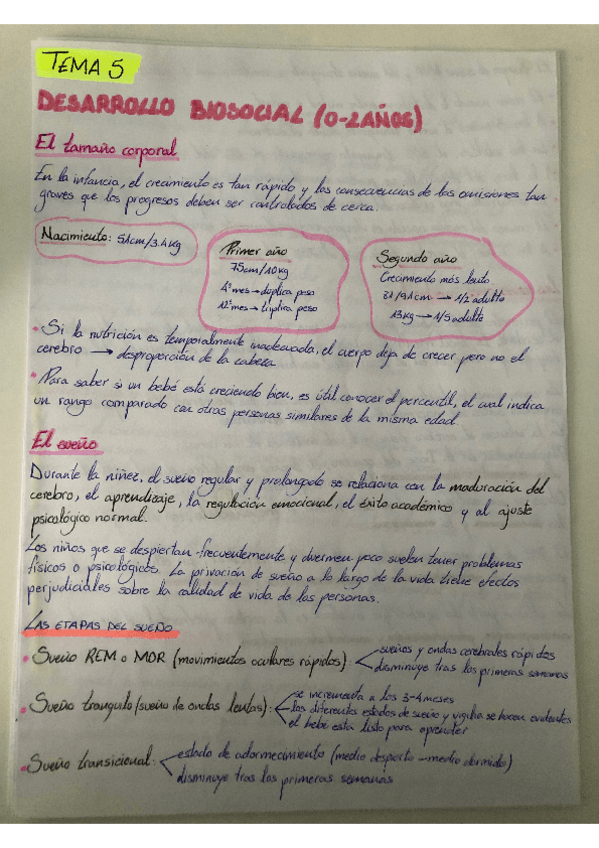 TEMA 5
DESARROLLO BIOSOCIAL (0-2 AÑOS)
El tamaño corporal
En la infancia, el crecimiento es tan rápido y las consecuencias de las omisiones tan
graves que los progresos deben ser controlados de cerca.
Nacimiento: 51cm/3.4kg
Primer año
75cm/10kg
4º mes → duplica peso
12º mes → triplica peso
Segundo año
Crecimiento más lento
81/91cm → 1/2 adulto
13kg → 1/5 adulto
• Si la nutrición es temporalmente inadecuada, el cuerpo deja de crecer pero no el
cerebro → desproporción de la cabeza
• Para saber si un bebé está creciendo bien, es útil conocer el percentil, el cual indica
un rango comparado con otras personas similares de la misma edad.
El sueño
Durante la niñez, el sueño regular y prolongado se relaciona con la maduración del
cerebro, el aprendizaje, la regulación emocional, el éxito académico y al ajuste
psicológico normal.
Los niños que se despiertan frecuentemente y duermen poco suelen tener problemas
físicos o psicológicos. La privación de sueño a lo largo de la vida tiene efectos
perjudiciales sobre la calidad de vida de las personas.
LAS ETAPAS DEL SUEÑO
• Sueño REM o MOR (movimientos oculares rápidos):
sueños y ondas cerebrales rápidos
disminuye tras las primeras semanas
• Sueño tranquilo/sueño de ondas lentas):
se incrementa a los 3-4 meses
los diferentes estados de sueño y vigilia se hacen evidentes
el bebé esta listo para aprender
• Sueño transicional:
estado de adormecimiento (medio despierto - medio dormido)
disminuye tras las primeras semanas